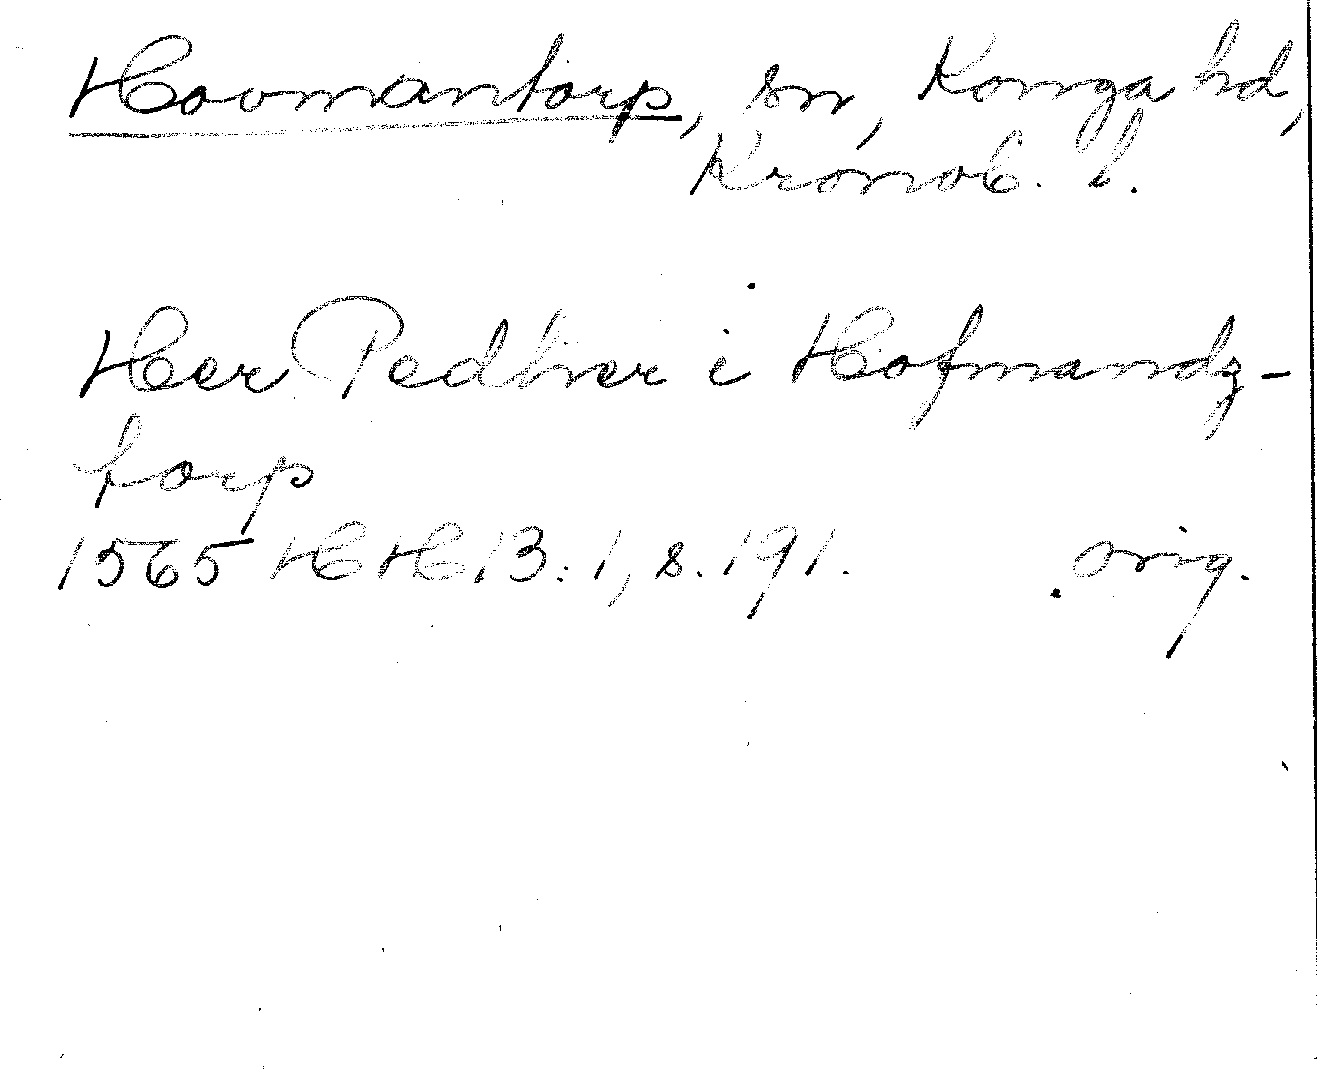 Hovmantorp, sn, Konga hd,
Kronob. l.
Her Pedher i Hofmandz-
torp
1565 HH 13:1, s. 191. orig.